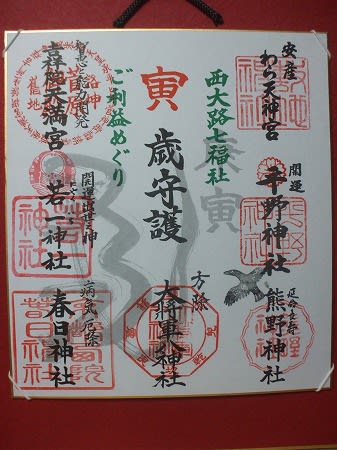 安産
わら天神宮
開運
平野神社
延命長寿
熊野神社
西大路七福社
ご利益めぐり
寅
歳守護
庚寅
方除
大将軍八神社
智恵と能力の復元
吉祥院天満宮
開運出世の神
若一神社
病気厄除
春日神社